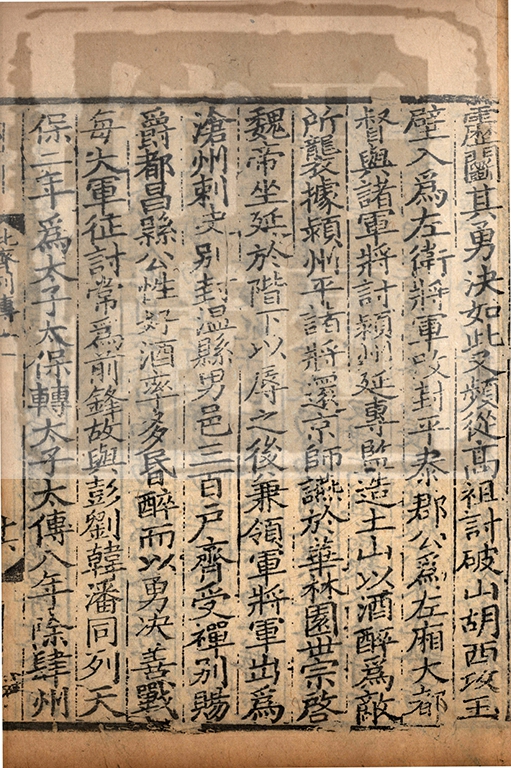 重歷圍其勇決如此又頻從高祖討破山胡西攻玉
壁入爲左衛將軍改封平泰郡公爲左廂大都
督與諸軍將討潁州延專監造土山以酒醉爲敵
所襲據潁州平諸將還京師讌於華林園世宗啓
魏帝坐延於階下以辱之後兼領軍將軍出爲
滄州刺史別封温縣男邑三百户齊受禪别賜
爵都昌縣公性好酒率多昏醉而以勇决善戰
每大軍征討常爲前鋒故與彭劉韓潘同列天
保二年爲太子太保轉太子太傳八年除肆州
北齊列傳十一